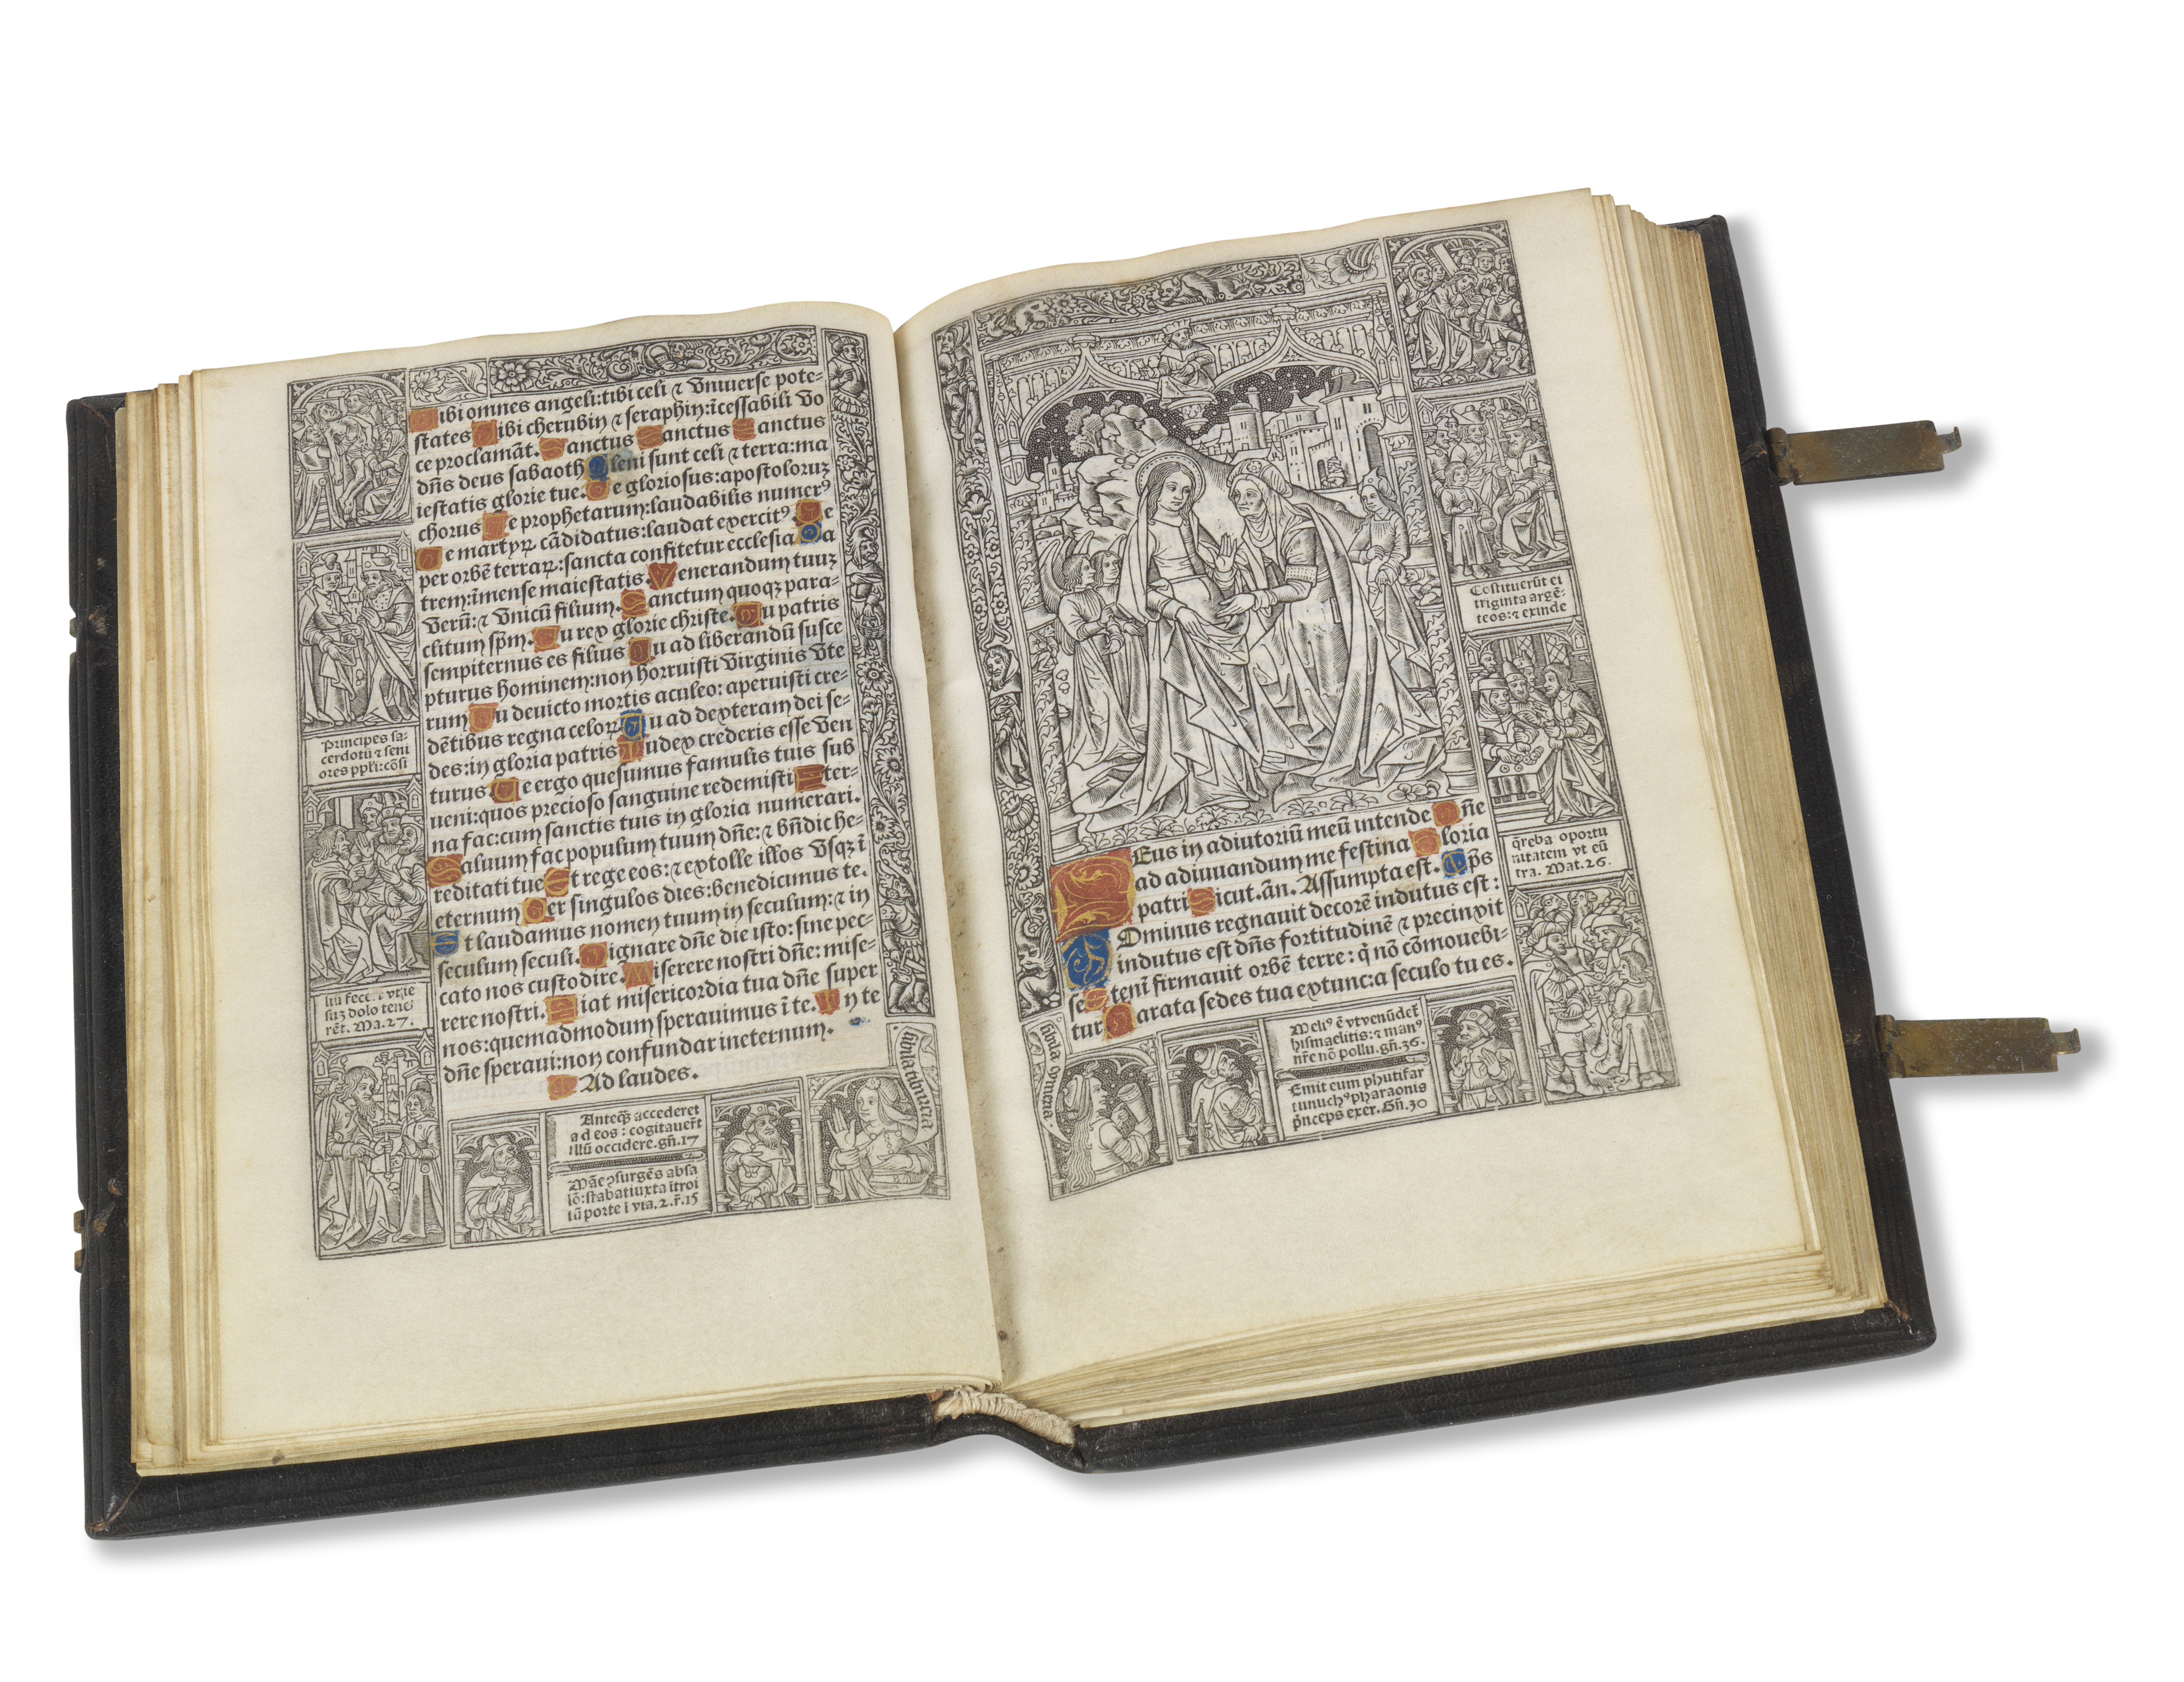 Tibi omnes angeli:tibi celi ⁊ Vniuerse pote-
states Tibi cherubin ⁊ seraphin:īcessabili Vo
ce proclamāt. Sanctus Sanctus Sanctus
dn̄s deus sabaoth Pleni sunt celi ⁊ terra:ma
iestatis glorie tue. Te gloriosus:apostoloruꝫ
chorus Te prophetarum:laudabilis numerꝰ
Te martyrꝝ cādidatus:laudat exercitꝰ Te
per orbē terraꝝ:sancta confitetur ecclesia Pa
trem:īmense maiestatis. Venerandum tuuꝫ
Verū:⁊ Vnicū filium. Sanctum quoqꝫ para-
clitum sp̄m. Tu rex glorie christe. Tu patris
sempiternus es filius Tu ad liberandū susce
pturus hominem:non horruisti Virginis Vte
rum Tu deuicto mortis aculeo: aperuisti cre-
dētibus regna celoꝝ Tu ad dexteram dei se-
des:in gloria patris Iudex crederis esse Ven
turus. Te ergo quesumus famulis tuis sub
ueni:quos precioso sanguine redemisti Eter-
na fac:cum sanctis tuis in gloria numerari.
Saluum fac populum tuum dn̄e:⁊ bn̄dic he-
reditati tue Et rege eos:⁊ extolle illos Vsqꝫ ī
eternum Per singulos dies:benedicimus te.
Et laudamus nomen tuum in seculum:⁊ in
seculum seculi. Dignare dn̄e die isto:sine pec-
cato nos custodire. Miserere nostri dn̄e: mise-
rere nostri. Fiat misericordia tua dn̄e super
nos:quemadmodum sperauimus ī te. In te
dn̄e speraui:non confundar ineternum.
Ad laudes.
Principes sa-
cerdotū ⁊ seni
ores ppl̄i:cōsi
liū fecer. vt ie
suꝫ dolo tene
rēt. Ma.27.
Anteqꝫ accederet
ad eos : cogitauer̄t
illū occidere.gn̄.17
Māe ꝯsurgēs absa
lō:stabat iuxta ītroi
tū porte ī via.2.r̄.15
sibila tiburcia
Costituerūt ei
triginta argē-
teos:⁊ exinde
q̄reba oportu
nitatem vt eū
tra. Mat.26.
DEus in adiutoriū meū intende Dn̄e
ad adiuuandum me festina Gloria
patri Sicut.ān. Assumpta est. Ps̄
DOminus regnauit decorē indutus est :
indutus est dn̄s fortitudinē ⁊ precinxit
se Etenī firmauit orbē terre: q̄ nō cōmouebi-
tur Parata sedes tua extunc:a seculo tu es.
Meliꝰ ē vt venūdet̄
hismaelitis: ⁊ manꝰ
nr̄e nō pollu.gn̄.36.
Emit eum phutifar
eunuchꝰ pharaonis
p̄nceps exer. Gn̄.30